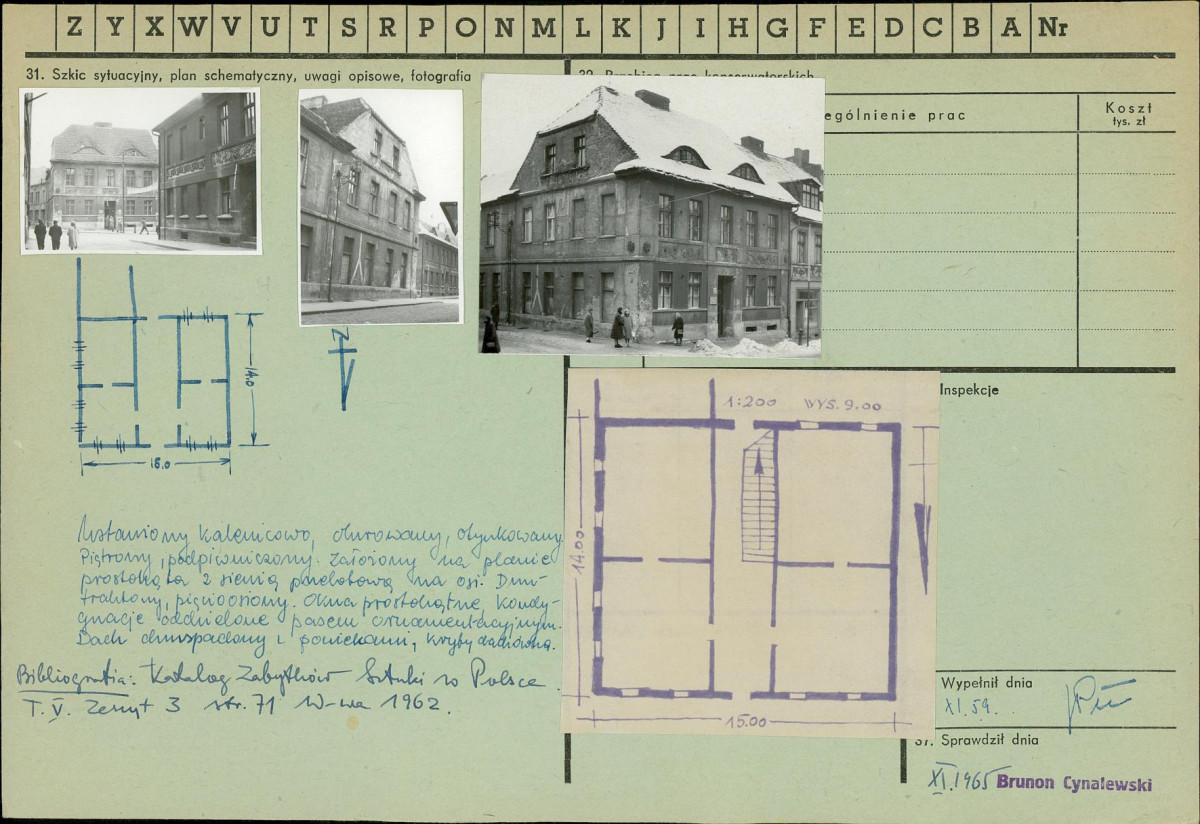 Z Y X W V U T S R P O N M L K J I H G F E D C B A Nr
31. Szkic sytuacyjny, plan schematyczny, uwagi opisowe, fotografia
32. Przebieg prac konserwatorskich
ególnienie prac
Koszt
tys. zł
N
14.0
15.0
1:200 WYS. 9.00
14.00
15.00
Inspekcje
Ustawiony kalenicowo, murowany, otynkowany.
Piętrowy, podpiwniczony. Założony na planie
prostokąta z sienią przelotową na osi. Dwu-
traktowy, pięcioosiowy. Okna prostokątne, kondy-
gnacje oddzielone pasem ornamentacyjnym.
Dach dwuspadowy z powiekami, kryty dachówką.
Bibliografia: Katalog Zabytków Sztuki w Polsce.
T. V. Zeszyt 3 str. 71 W-wa 1962.
Wypełnił dnia
XI.59.
37. Sprawdził dnia
XI.1965 Brunon Cynalewski